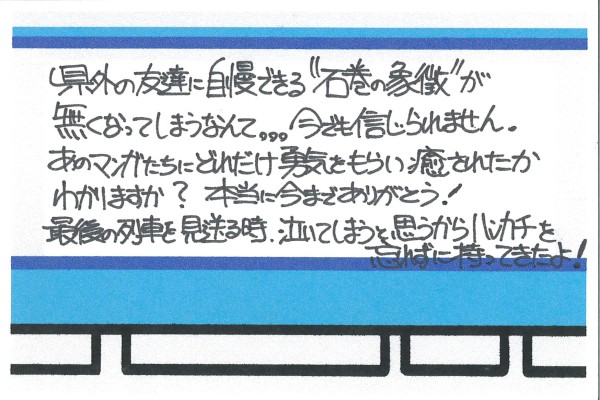 県外の友達に自慢できる"石巻の象徴"が
無くなってしまうなんて。。。今でも信じられません。
あのマンガたちにどれだけ勇気をもらい癒されたか
わかりますか？本当に今までありがとう！
最後の列車を見送る時、泣いてしまうと思うからハンカチを
忘れずに持ってきたよ！